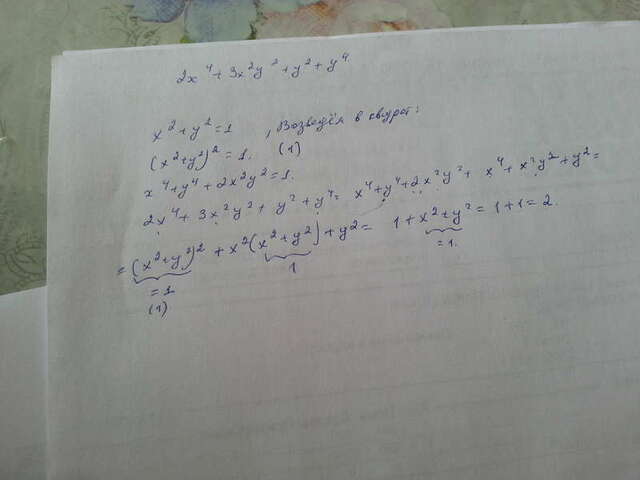 2x⁴ + 3x²y² + y² + y⁴.
x² + y² = 1 , Возведём в квадрат:
(x² + y²)² = 1. (1)
x⁴ + y⁴ + 2x²y² = 1.
2x⁴ + 3x²y² + y² + y⁴ = x⁴ + y⁴ + 2x²y² + x⁴ + x²y² + y² =
= (x² + y²)² + x²(x² + y²) + y² = 1 + x² + y² = 1 + 1 = 2.
= 1 1 = 1.
(1)